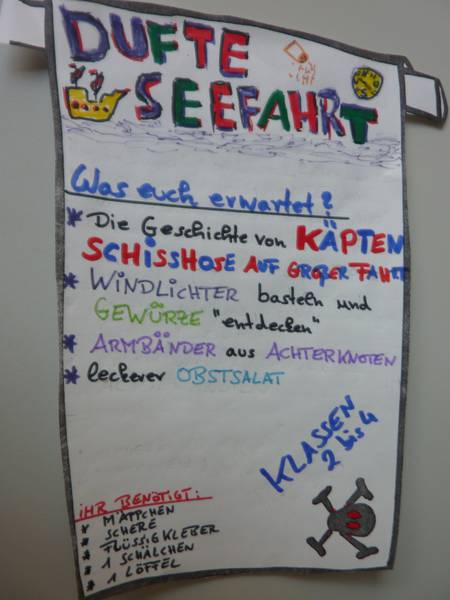 DUFTE
SEEFAHRT
Was euch erwartet?
* Die Geschichte von KÄPTEN
SCHISSHOSE AUF GROßER FAHRT
* WINDLICHTER basteln und
GEWÜRZE "entdecken"
* ARMBÄNDER aus ACHTERKNOTEN
* leckerer OBSTSALAT
KLASSEN
2 bis 4
IHR BENÖTIGT:
* MÄPPCHEN
* SCHERE
* FLÜSSIGKLEBER
* 1 SCHÄLCHEN
* 1 LÖFFEL